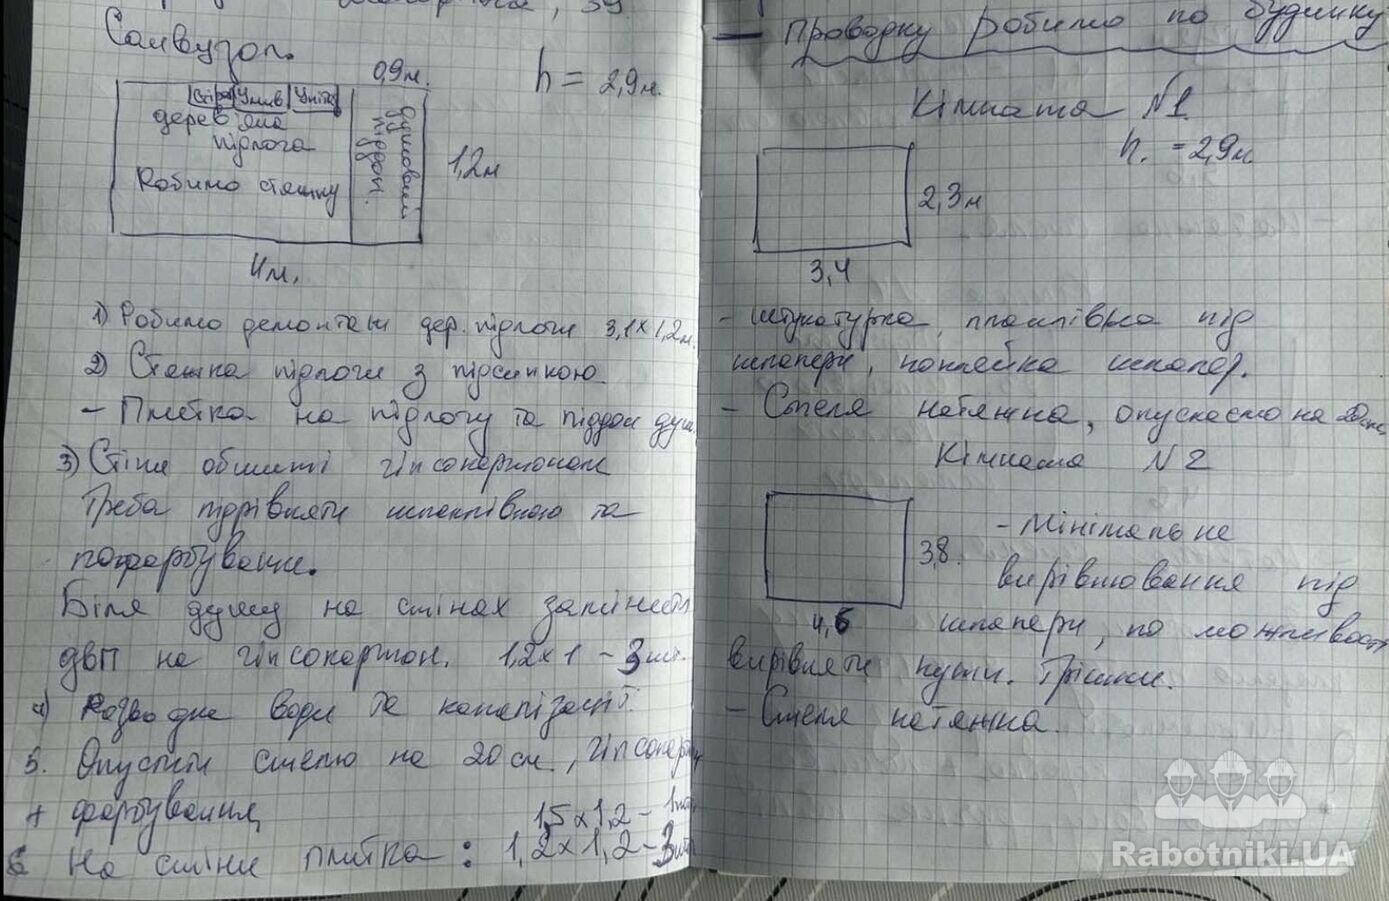 Санвузол.
0,9м.
h = 2,9м.
Умив
дерев'яна
підлога
Робимо стяжку
душовий
піддон.
1,2м
4м.
1) Робимо демонтаж дер. підлоги 3,1×1,2м.
2) Стяжка підлоги з підсипкою.
- Плитка на підлогу та піддон душ.
3) Стіни обшиті гіпсокартоном
Треба підрівняти шпаклівкою та
пофарбування.
Біля душу на стінах замінити
ДВП на гіпсокартон. 1,2×1 - 3шт.
4) Розводка води та каналізації.
5. Опустити стелю на 20 см, гіпсокартон
+ фарбування
1,5×1,2 - 1шт
6 На стіни плитка : 1,2×1,2 - 3шт
- Проводку робимо по будинку
Кімната N1
h. = 2,9м
2,3м
3,4
- штукатурка, шпаклівка під
шпалери, поклейка шпалер.
- Стеля натяжна, опускаємо на 20см.
Кімната N 2
- Мінімальне
3,8.
вирівнювання під
4,6
шпалери, по можливості
вирівняти кути. Трішки.
- Стеля натяжна.
Rabotniki.UA